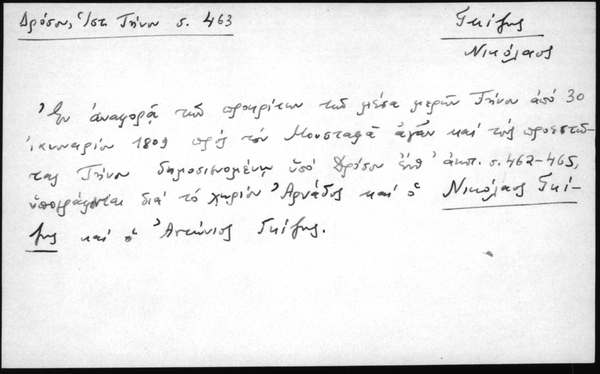 Δρόσου, Ἱστ. Τήνου σ. 463
Γκίζης
Νικόλαος
Ἐν ἀναφορᾷ τῶν προκρίτων τῶν μέσα μερῶν Τήνου ἀπό 30
ἰανουαρίου 1809 πρός τόν Μουσταφᾶ ἀγᾶν καί τούς προεστῶ-
τας Τήνου δημοσιευομένῃ ὑπό Δρόσου ἐνθ' ἀνωτ. σ. 462-465,
ὑπογράφονται διά τό χωρίον Ἀρνάδος καί ὁ Νικόλαος Γκί-
ζης καί ὁ Ἀντώνιος Γκίζης.